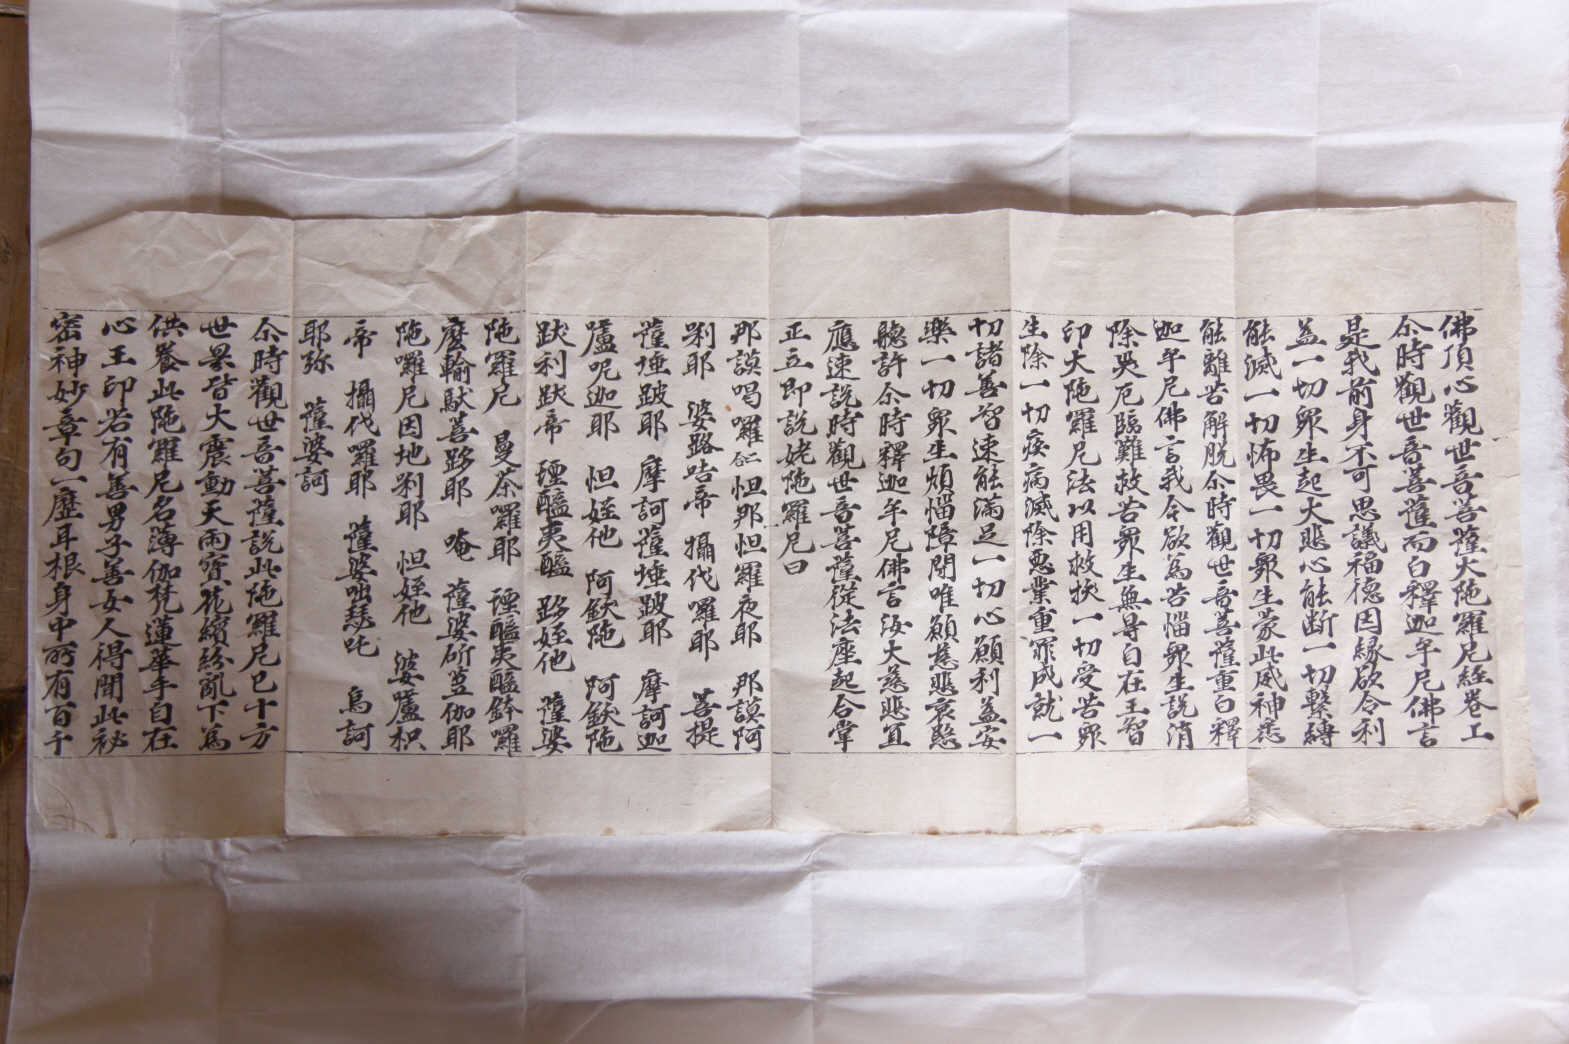 佛頂心觀世音菩薩大陁羅尼經卷上
尒時觀世音菩薩而白釋迦牟尼佛言
是我前身不可思議福德因緣欲令利
益一切衆生起大悲心能断一切繫縛
能滅一切怖畏一切衆生蒙此威神悉
能離苦解脱尒時觀世音菩薩重白釋
迦牟尼佛言我今欲爲苦惱衆生說消
除灾厄臨難救苦衆生無㝵自在王智
印大陁羅尼法以用救拔一切受苦衆
生除一切疾病滅除惡業重罪成就一
切諸善智速能滿足一切心願利益安
樂一切衆生煩惱障閇唯願慈悲哀愍
聽許尒時釋迦牟尼佛言汝大慈悲宜
應速說時觀世音菩薩從法座起合掌
正立即說姥陁羅尼曰
那謨喝囉 怛那怛羅夜耶 那謨阿
唎耶 婆路咭帝 攝伐囉耶 菩提
薩埵跛耶 摩訶薩埵跛耶 摩訶迦
嚧呢迦耶 怛姪他 阿鈸陁 阿鈸陁
跋利跋帝 堙醯夷醯 跢姪他 薩婆
陁羅尼 曼茶囉耶 堙醯夷醯 鉢囉
麼輸馱菩跢耶 唵 薩婆斫芻伽耶
陁囉尼因地唎耶 怛姪他 婆嚧枳
帝 攝伐囉耶 薩婆咄瑟吒 烏訶
耶弥 薩婆訶
尒時觀世音菩薩說此陁羅尼已十方
世界皆大震動天雨寶花繽紛亂下爲
供養此陁羅尼名薄伽梵蓮華手自在
心王印若有善男子善女人得聞此祕
密神妙章句一歷耳根身中所有百千